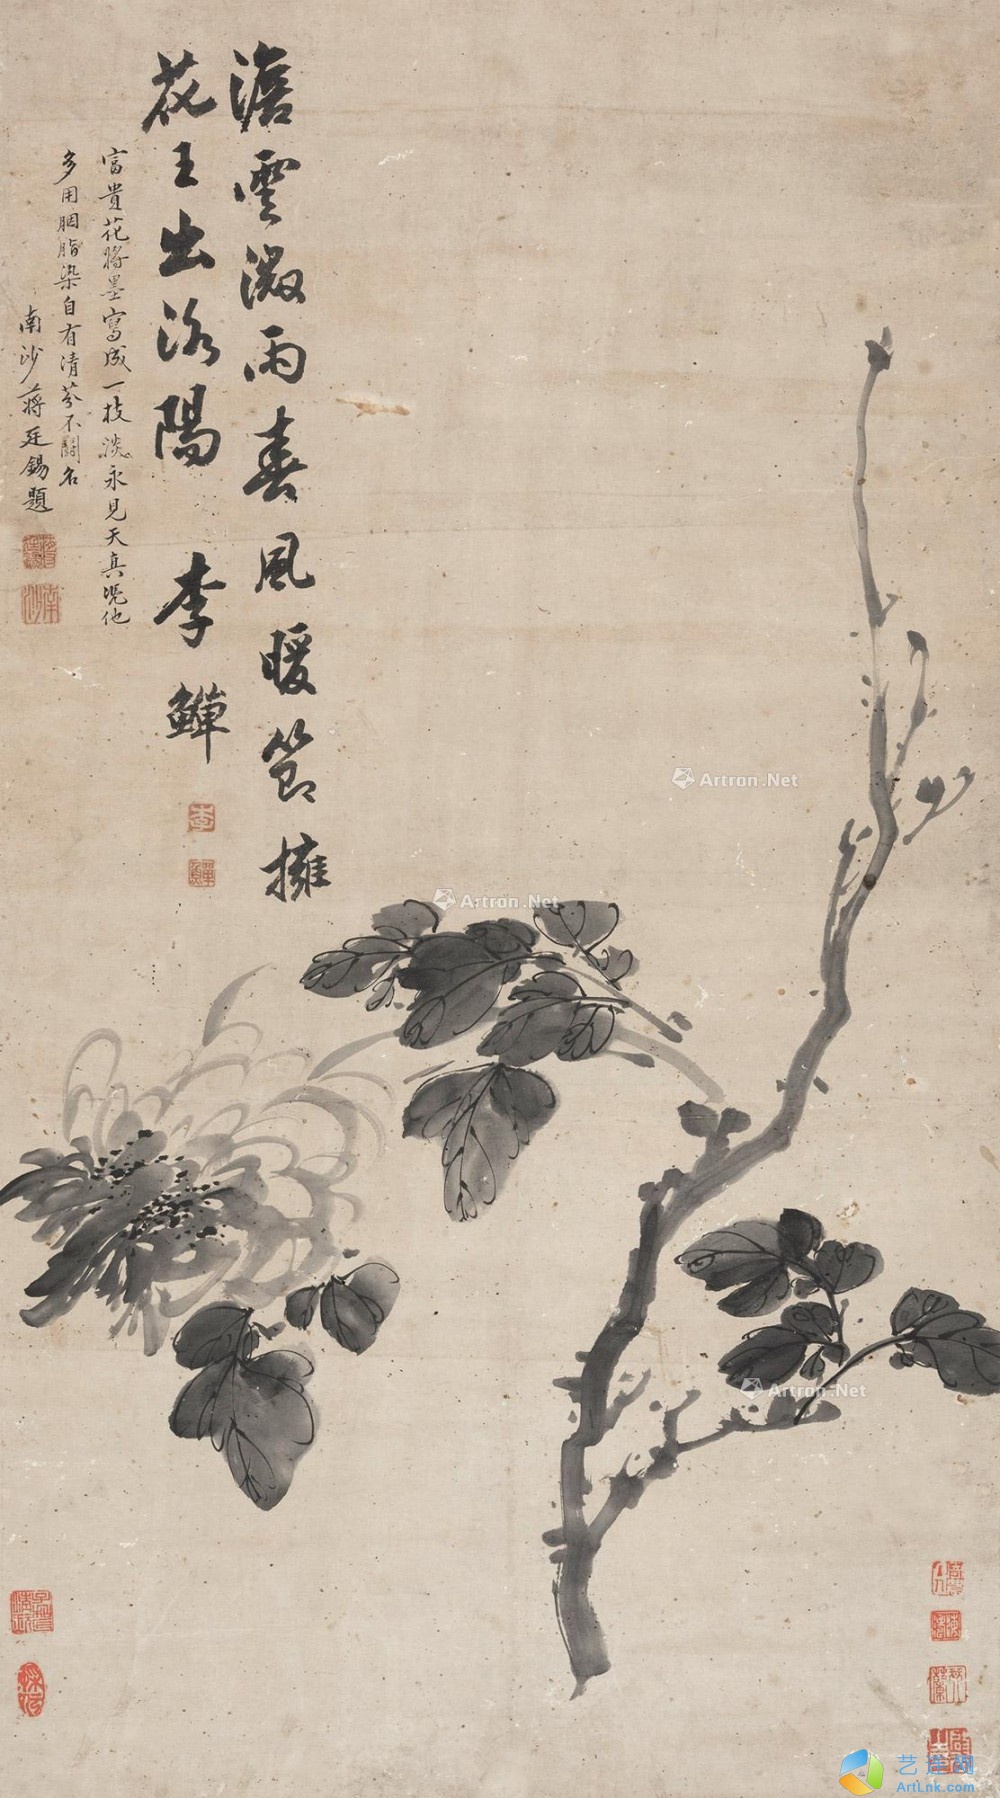 澹雲微雨春風暖節擁
花王出洛陽 李鱓
富貴花將墨寫成一技淡永見天真况他
多用胭脂染自有清芬不鬪名
南沙蔣廷錫題
李
鱓
南沙
Artron.Net
Artron.Net
Artron.Net
艺连网
ArtLnk.com